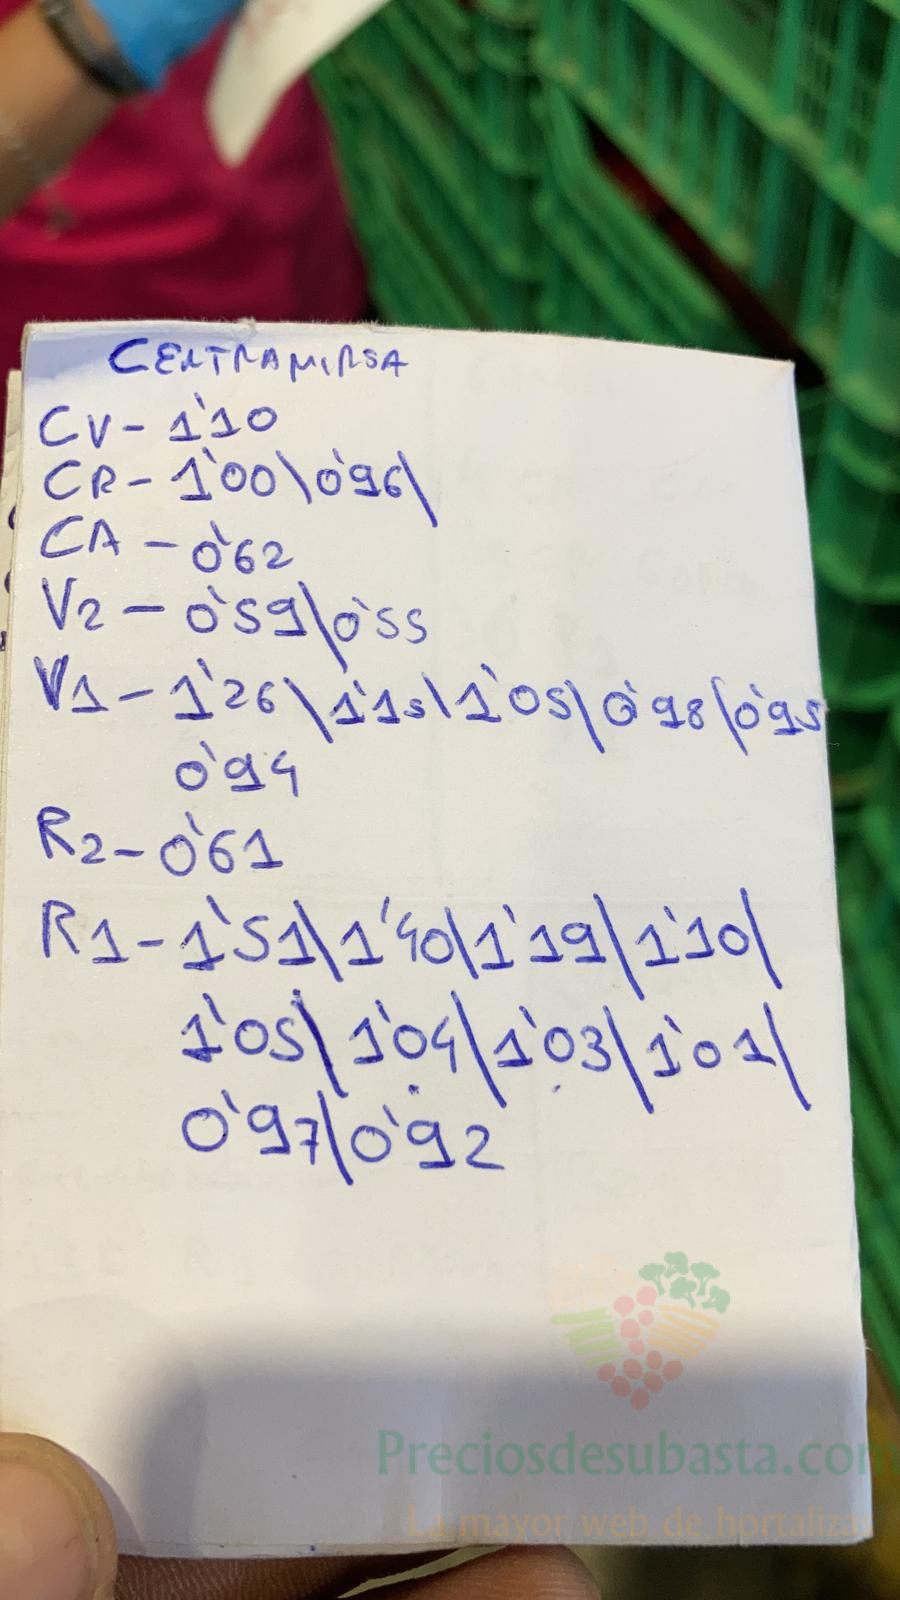 CENTRAMIRSA
CV- 1'10
CR- 1'00\0'96\
CA - 0'62
V2 - 0'59\0'55
V1 - 1'26\1'15\1'05\0'98\0'95
0'94
R2- 0'61
R1- 1'51\1'40\1'19\1'10\
1'05\1'04\1'03\1'01\
0'97\0'92
Preciosdesubasta.com
La mayor web de hortaliza